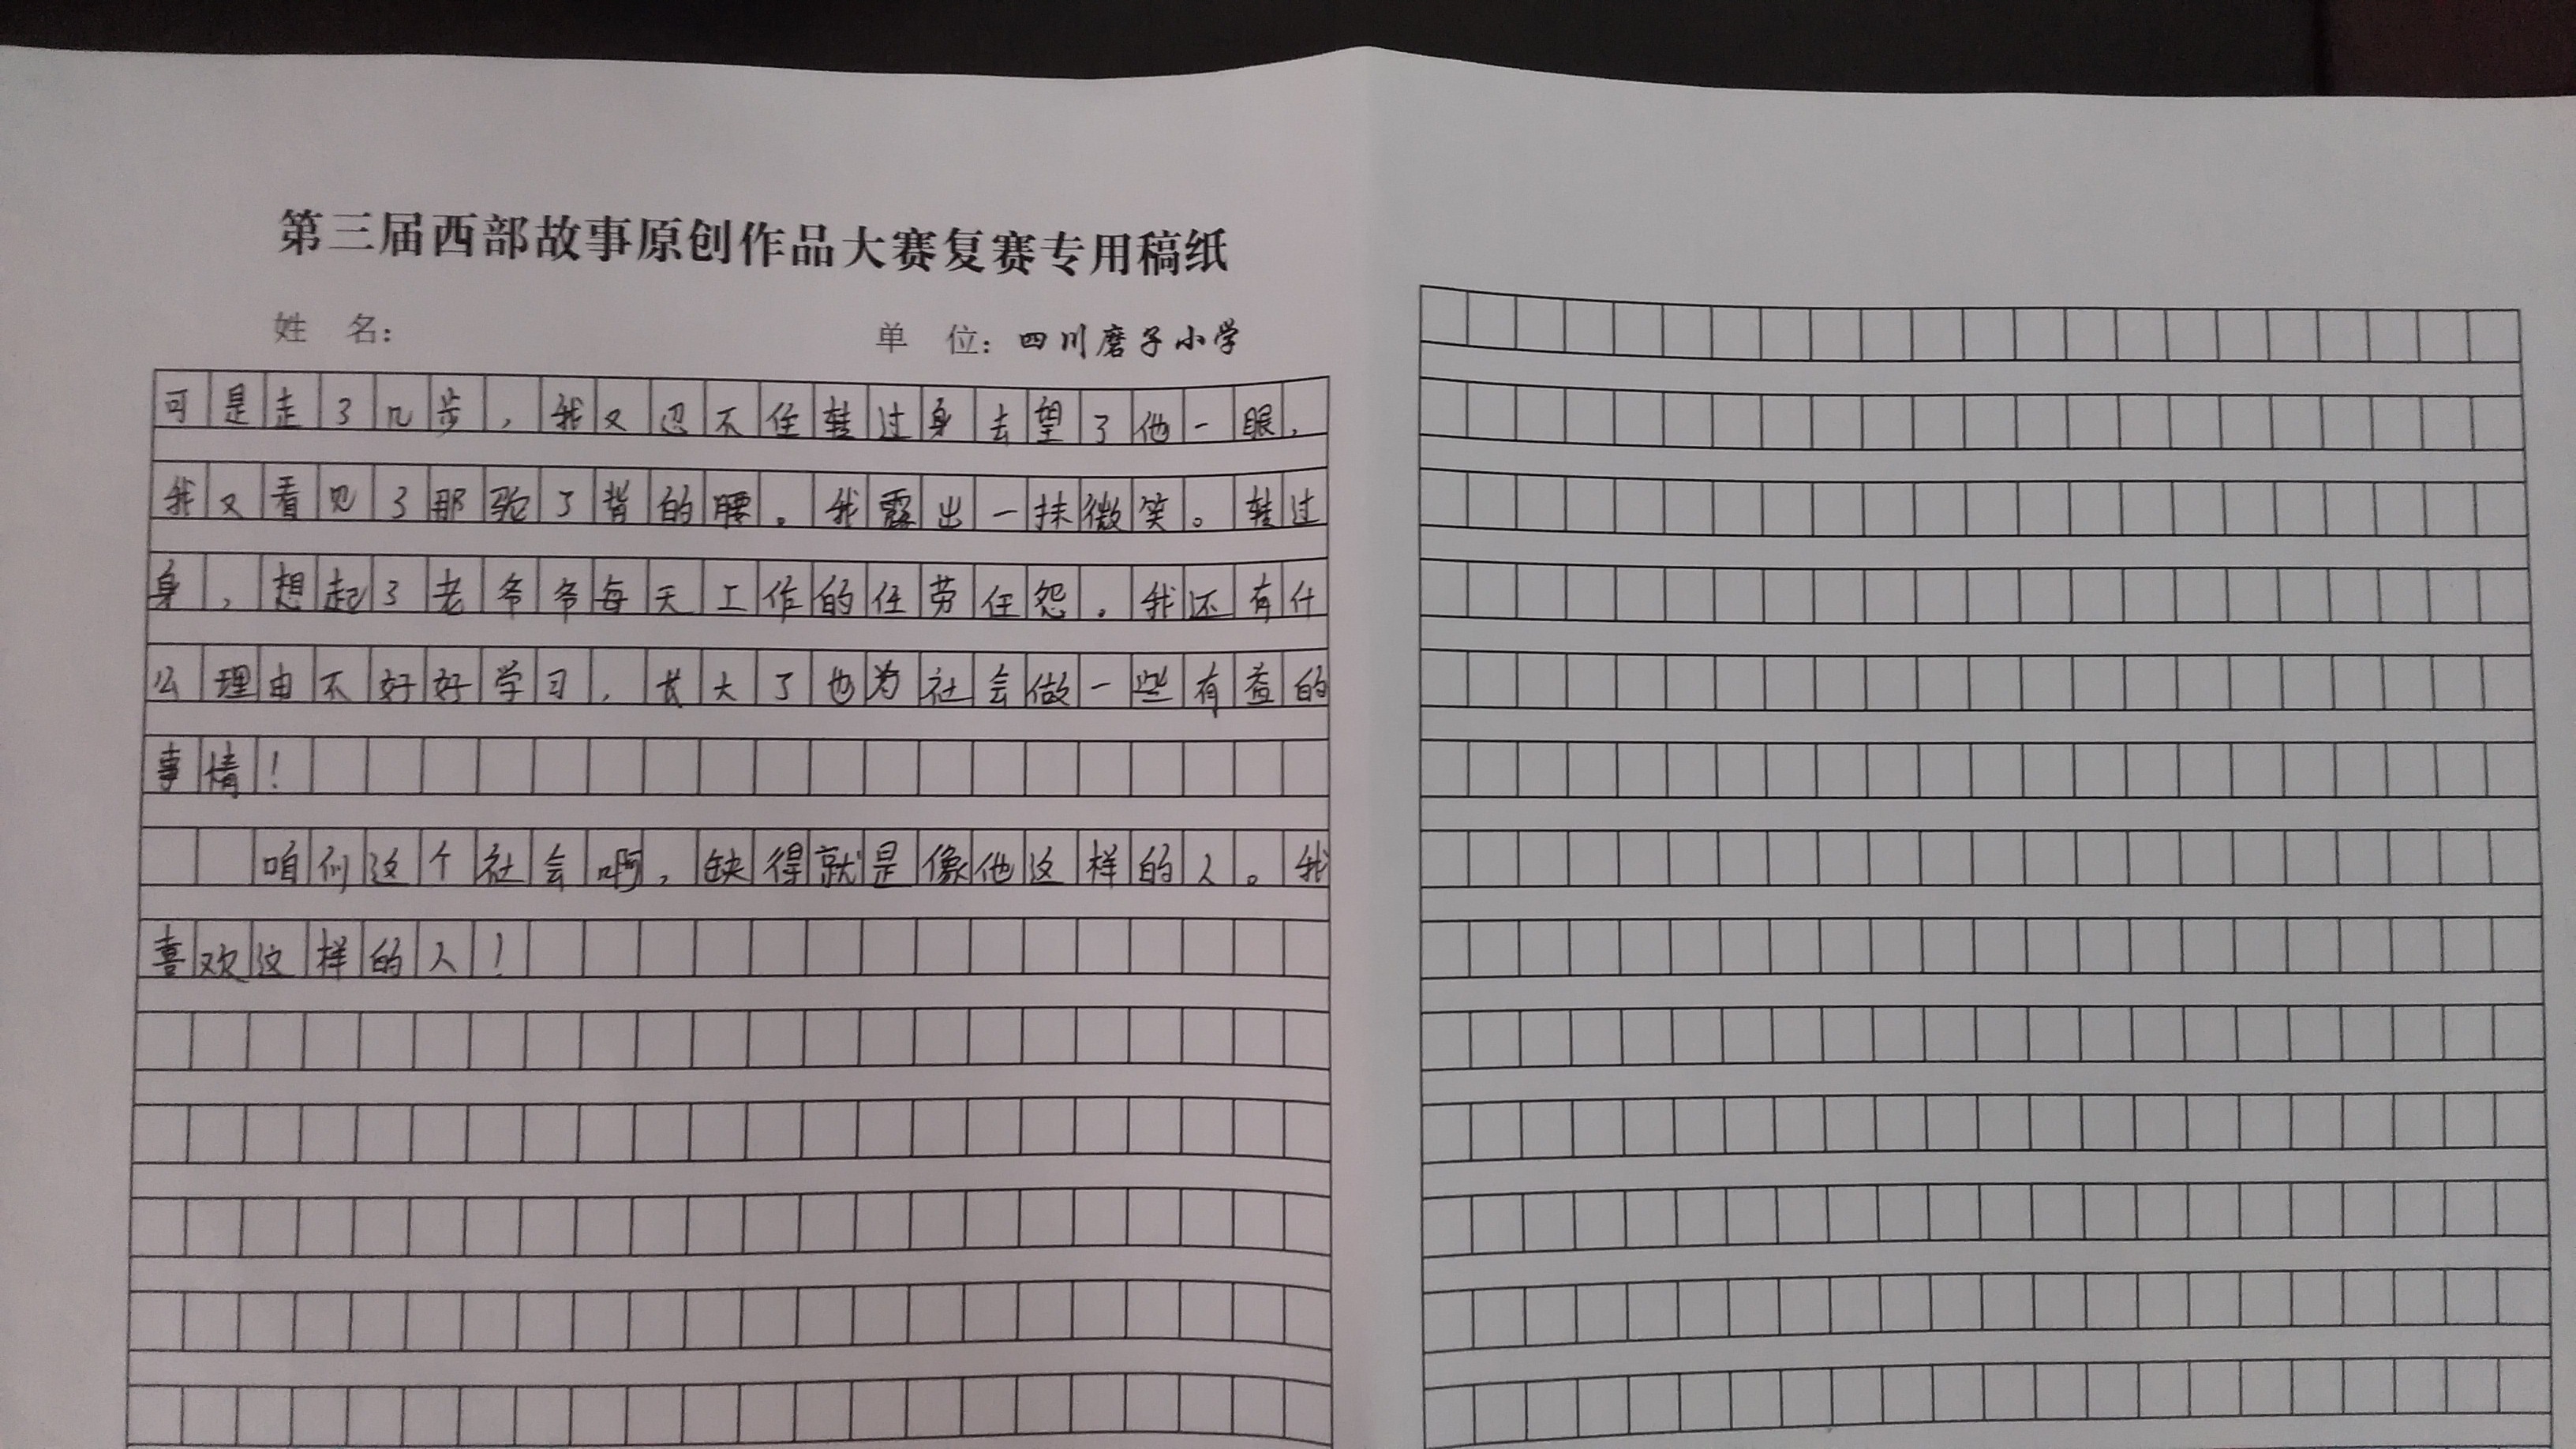 第三届西部故事原创作品大赛复赛专用稿纸
姓 名: 单 位: 四川磨子小学
可是走了几步,我又忍不住转过身去望了他一眼,
我又看见了那驼了背的腰。我露出一抹微笑。转过
身,想起了老爷爷每天工作的任劳任怨。我还有什
么理由不好好学习,长大了也为社会做一些有益的
事情!
咱们这个社会啊,缺得就是像他这样的人。我
喜欢这样的人!